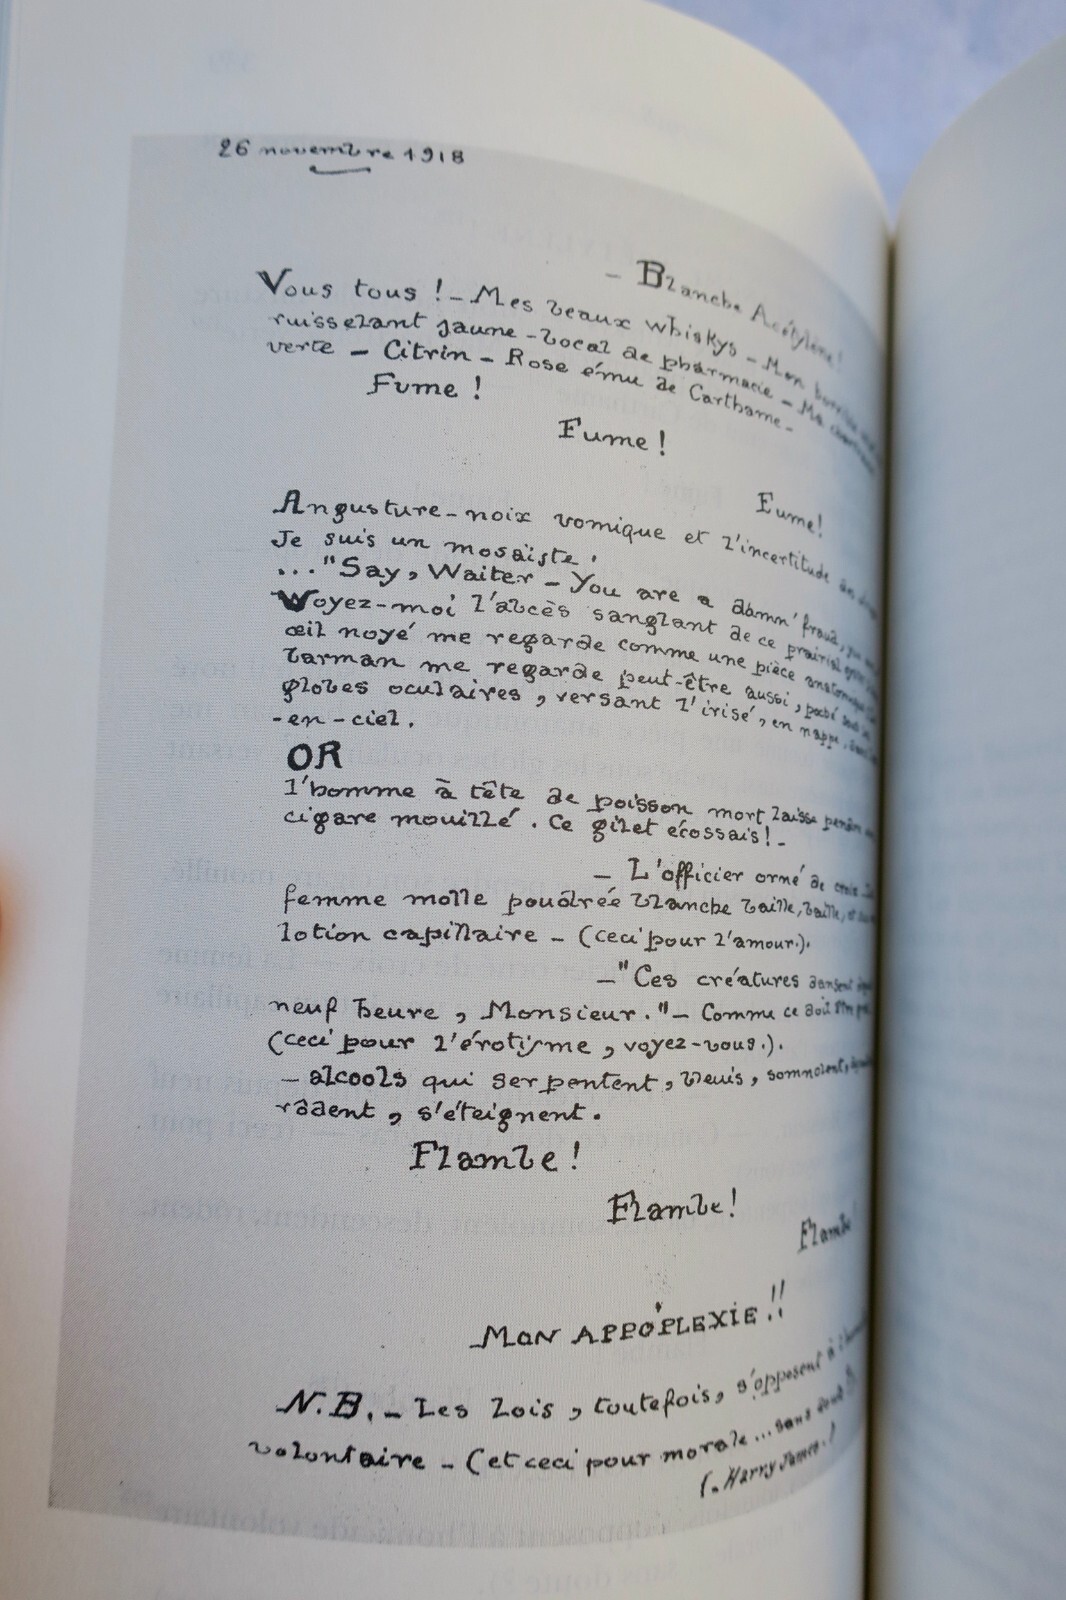 26 novembre 1918
— Blanche Acétylène!
Vous tous! — Mes beaux whiskys — Mon horrible
ruisselant jaune — bocal de pharmacie — Ma chartreuse
verte — Citrin — Rose ému de Carthame —
Fume!
Fume!
Fume!
Angusture — noix vomique et l'incertitude des
Je suis un mosaïste.
..."Say, Waiter — You are a damn' fraud, you are
Voyez-moi l'abcès sanglant de ce prairial
œil noyé me regarde comme une pièce anatomique
barman me regarde peut-être aussi, poché sous les
globes oculaires, versant l'irisé, en nappe, dans
-en-ciel.
OR
l'homme à tête de poisson mort laisse pendre
cigare mouillé. Ce gilet écossais! —
— L'officier orné de croix
femme molle poudrée blanche baille, baille, et
lotion capillaire — (ceci pour l'amour.).
— "Ces créatures dansent depuis
neuf heure, Monsieur." — Comme ce doit être
(ceci pour l'érotisme, voyez-vous.).
— alcools qui serpentent, bleuis, somnolent,
rôdent, s'éteignent.
Flambe!
Flambe!
Flambe!
MON APPOPLEXIE!!
N.B. — Les lois, toutefois, s'opposent à
volontaire — (et ceci pour morale... sans doute
(. Harry James.)